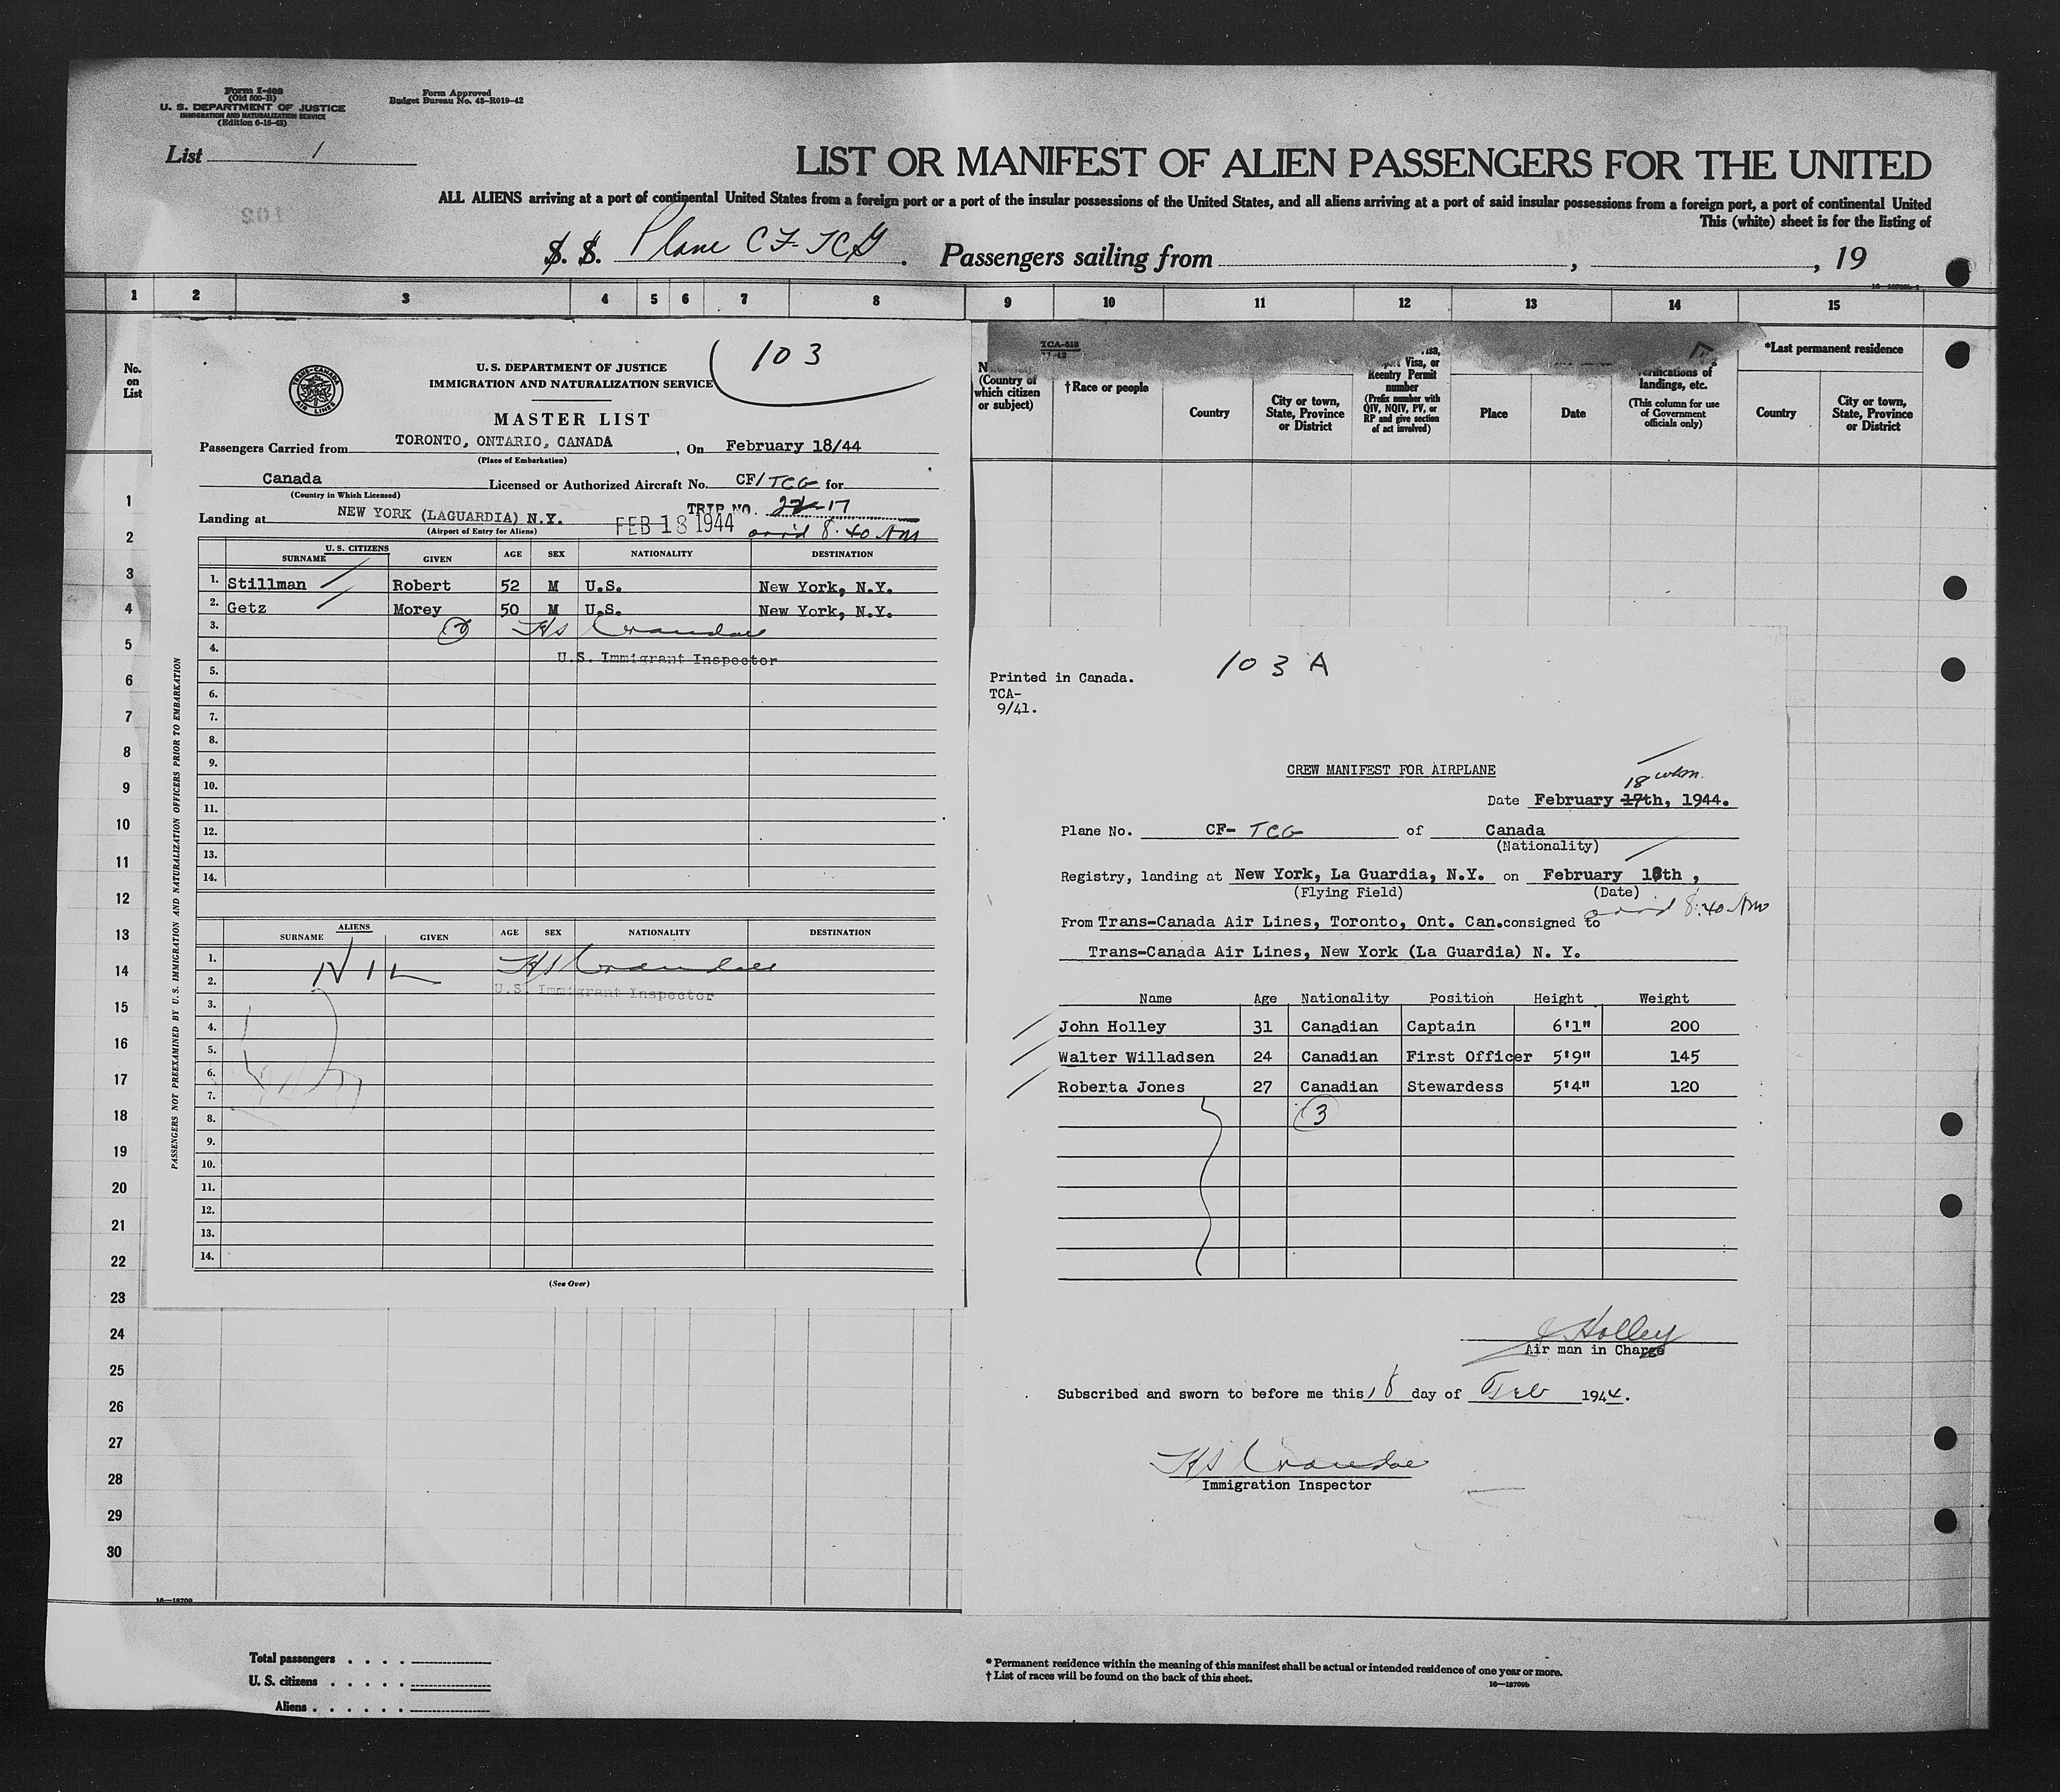 Form I-408
(Old 500-B)
U. S. DEPARTMENT OF JUSTICE
IMMIGRATION AND NATURALIZATION SERVICE
(Edition 6-15-43)
Form Approved
Budget Bureau No. 43-R019-42
List 1
102
LIST OR MANIFEST OF ALIEN PASSENGERS FOR THE UNITED
ALL ALIENS arriving at a port of continental United States from a foreign port or a port of the insular possessions of the United States, and all aliens arriving at a port of said insular possessions from a foreign port, a port of continental United
This (white) sheet is for the listing of
S. S. Plane CF-TCG. Passengers sailing from , , 19
1 2 3 4 5 6 7 8 9 10 11 12 13 14 15
No. on List
103
TRANS-CANADA AIR LINES
U. S. DEPARTMENT OF JUSTICE
IMMIGRATION AND NATURALIZATION SERVICE
MASTER LIST
Passengers Carried from TORONTO, ONTARIO, CANADA, On February 18/44
(Place of Embarkation)
Canada Licensed or Authorized Aircraft No. CF/TCG for
(Country in Which Licensed)
TRIP NO. 17
Landing at NEW YORK (LAGUARDIA) N.Y. FEB 18 1944 arrid 8:40 AM
(Airport of Entry for Aliens)
U. S. CITIZENS
SURNAME GIVEN AGE SEX NATIONALITY DESTINATION
1. Stillman Robert 52 M U.S. New York, N.Y.
2. Getz Morey 50 M U.S. New York, N.Y.
3. 2 HS Crandall
4.
U.S. Immigrant Inspector
5.
6.
7.
8.
9.
10.
11.
12.
13.
14.
ALIENS
SURNAME GIVEN AGE SEX NATIONALITY DESTINATION
1. NIL HS Crandall
2.
U.S. Immigrant Inspector
3.
4.
5.
6.
7.
8.
9.
10.
11.
12.
13.
14.
(See Over)
PASSENGERS NOT PREEXAMINED BY U.S. IMMIGRATION AND NATURALIZATION OFFICERS PRIOR TO EMBARKATION
TCA-518
(Country of which citizen or subject)
†Race or people
Country
City or town, State, Province or District
Visa, or Reentry Permit number
(Prefix number with QIV, NQIV, PV, or RP and give section of act involved)
Place
Date
verifications of landings, etc.
(This column for use of Government officials only)
*Last permanent residence
Country
City or town, State, Province or District
1
2
3
4
5
6
7
8
9
10
11
12
13
14
15
16
17
18
19
20
21
22
23
24
25
26
27
28
29
30
Printed in Canada.
TCA-
9/41.
103 A
CREW MANIFEST FOR AIRPLANE
18
Date February 17th, 1944.
Plane No. CF- TCG of Canada
(Nationality)
Registry, landing at New York, La Guardia, N.Y. on February 18th ,
(Flying Field) (Date)
arrid 8:40 AM
From Trans-Canada Air Lines, Toronto, Ont. Can. consigned to
Trans-Canada Air Lines, New York (La Guardia) N. Y.
Name Age Nationality Position Height Weight
John Holley 31 Canadian Captain 6'1" 200
Walter Willadsen 24 Canadian First Officer 5'9" 145
Roberta Jones 27 Canadian Stewardess 5'4" 120
3
J Holley
Air man in Charge
Subscribed and sworn to before me this 18 day of Feb 1944.
HS Crandall
Immigration Inspector
16—18700
Total passengers
U. S. citizens
Aliens
* Permanent residence within the meaning of this manifest shall be actual or intended residence of one year or more.
† List of races will be found on the back of this sheet.
16—18700b